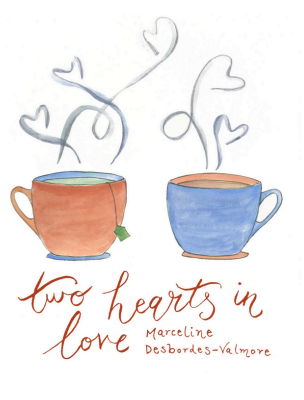 two hearts in
love
Marceline
Desbordes-Valmore